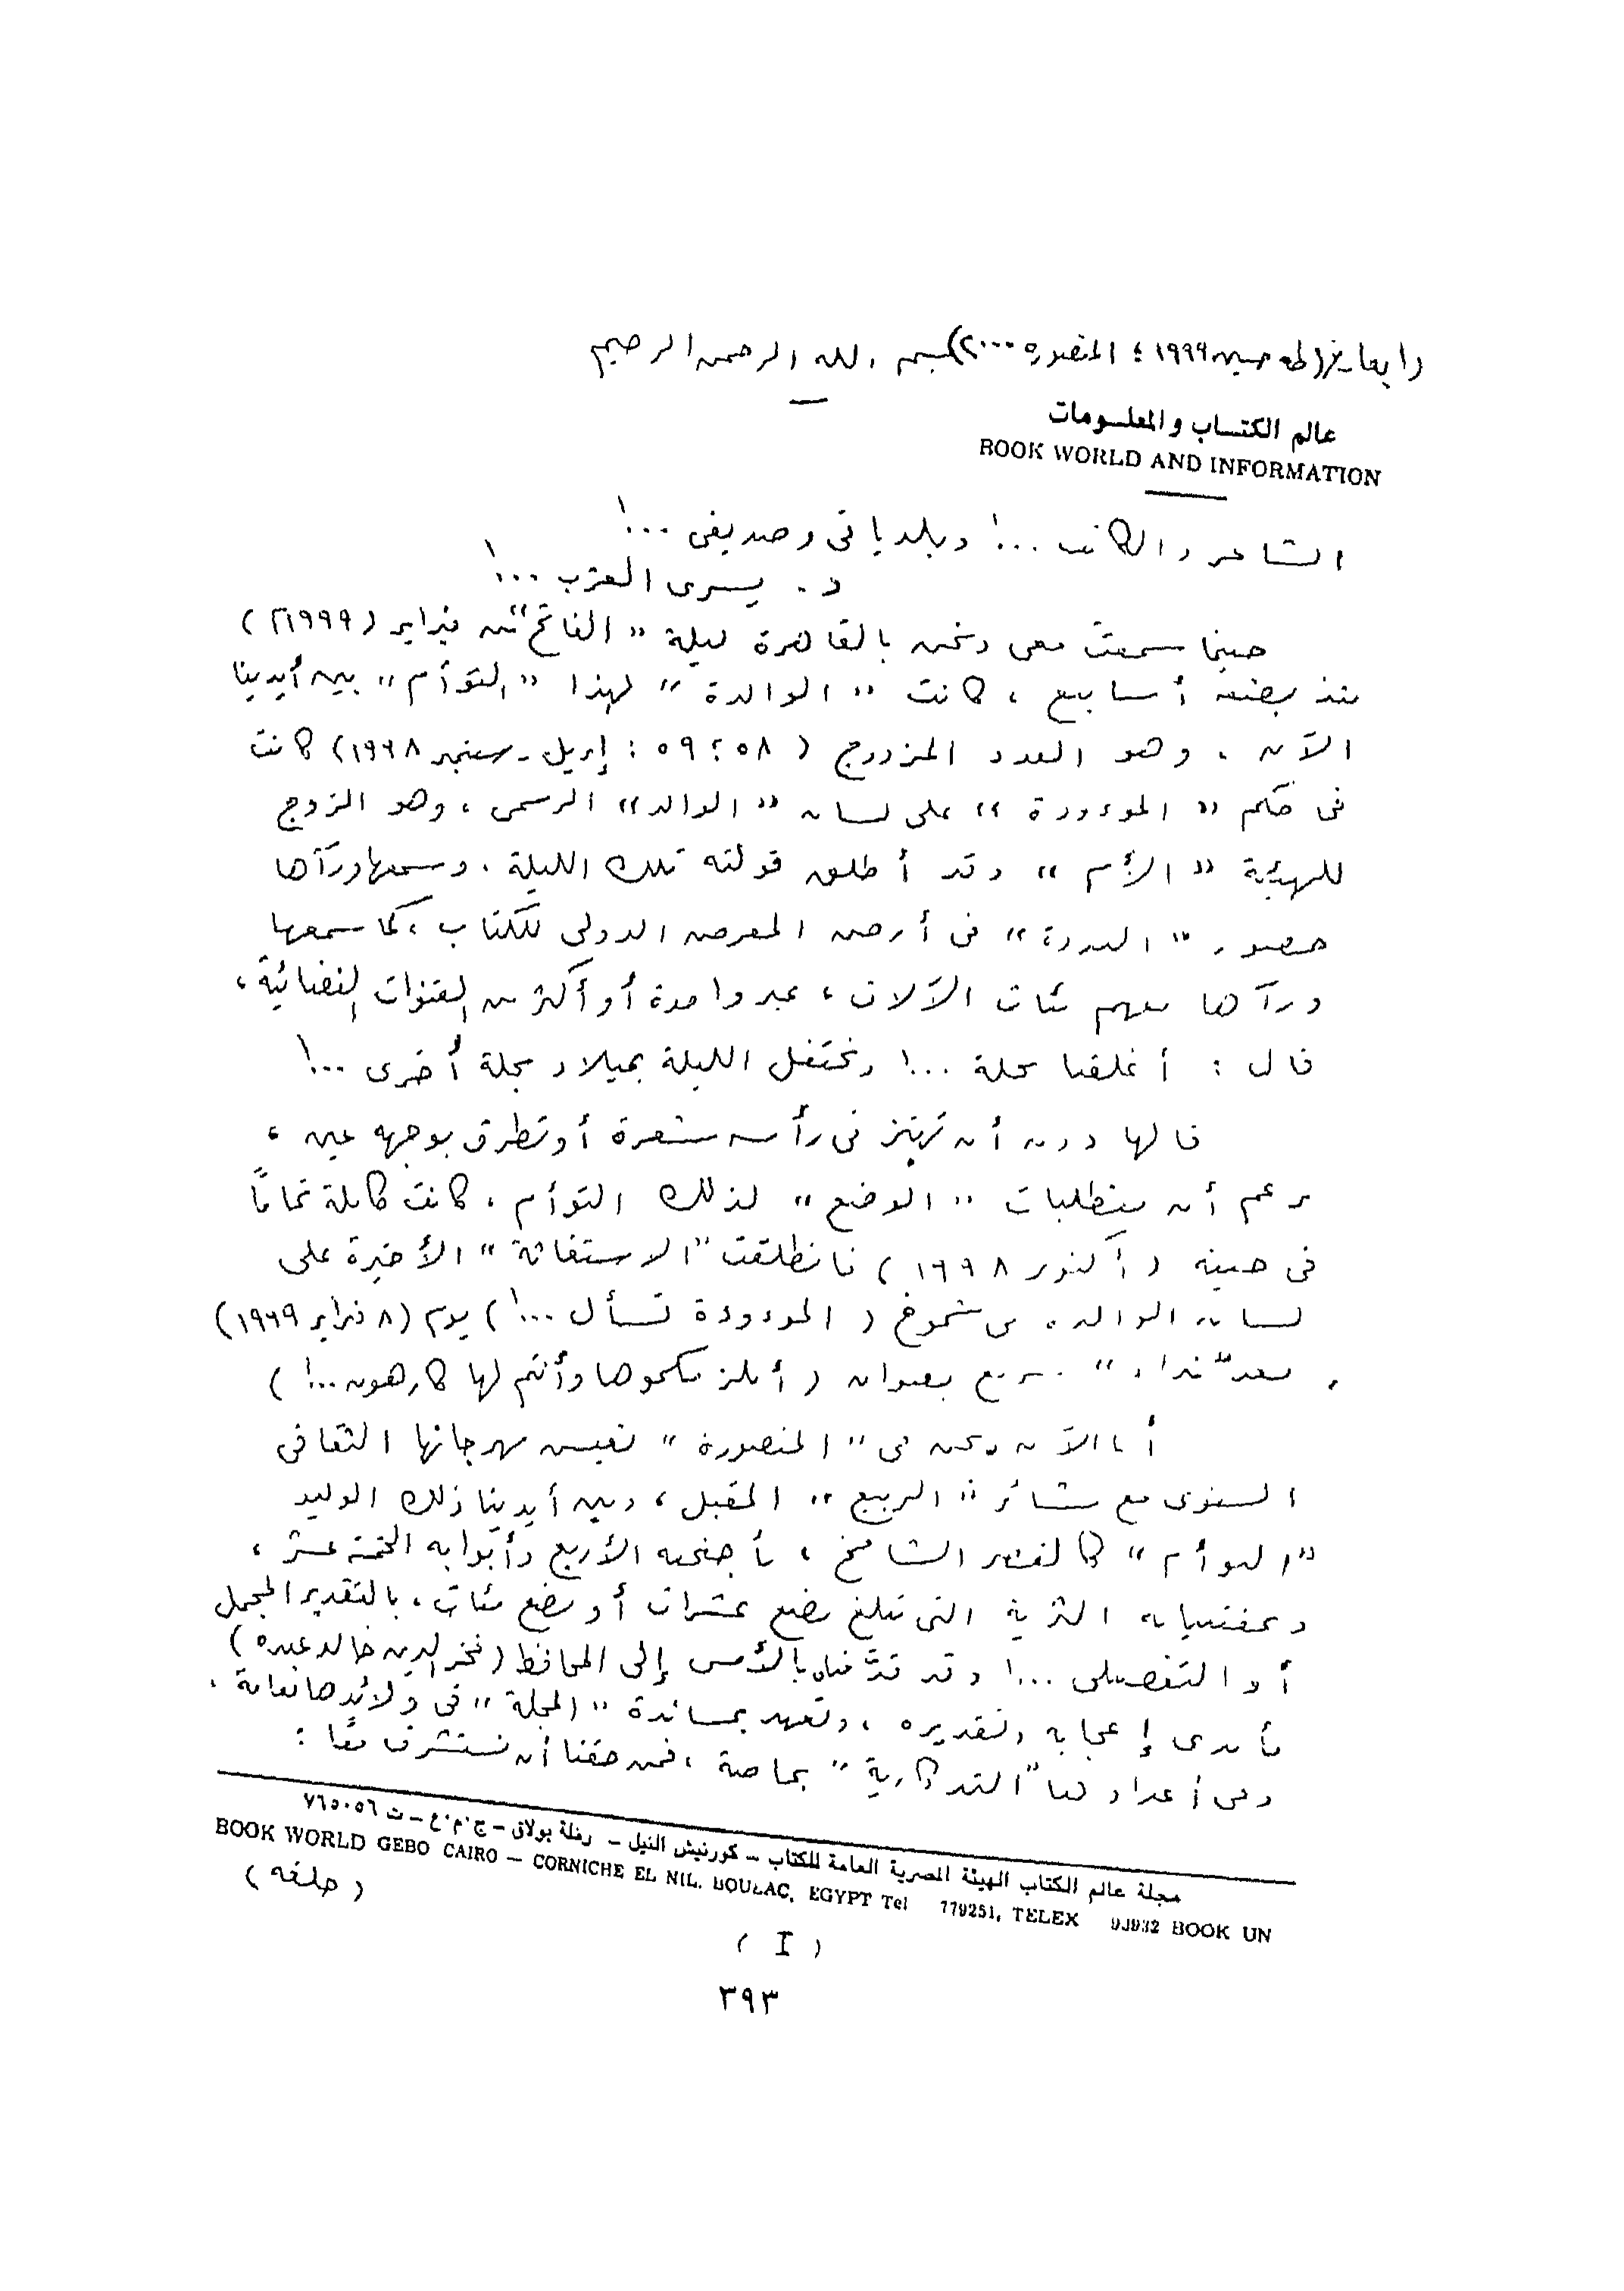 (طه حسين ١٩٩٩ ؛ المنصورة ٢٠٠٠) بسم الله الرحمن الرحيم
عالم الكتاب والمعلومات
BOOK WORLD AND INFORMATION
الشاعر والكاتب ...! وبلدياتى وصديقى ...!
د. يسرى العزب ...!
حينما سمعت معى ونحن بالقاهرة ليلة " الفاتح " من فبراير (١٩٩٩م)
منذ بضعة أسابيع ، كانت " الوالدة " لهذا " التوأم " بين أيدينا
الآن ، وهو العدد المزدوج ( ٥٨ ؛ ٥٩ : إبريل - سبتمبر ١٩٩٨) كانت
فى حكم " الموءودة " على لسان " الوالد " الرسمى ، وهو الزوج
للهيئة " الأم " وقد أطلق قولته تلك الليلة ، وسمعها ورآها
حضور " الندوة " فى أرض المعرض الدولى للكتاب ، كما سمعها
ورآها معهم مئات الآلاف ، عبر واحدة أو أكثر من القنوات الفضائية ،
قال : أغلقنا مجلة ...! ونحتفل الليلة بميلاد مجلة أخرى ...!
قالها دون أن تهتز فى رأسه شعرة أو تطرق بوجهه عين ،
برغم أن متطلبات " الوضع " لذلك التوأم ، كانت كاملة تمامًا
فى حينه ( أكتوبر ١٩٩٨ ) فانطلقت " الاستغاثة " الأخيرة على
لسان الوالد فى شموخ ( الموءودة تسأل ...! ) يوم (٨ فبراير ١٩٩٩)
بعد " نداء " بعنوان ( أنلزمكموها وأنتم لها كارهون ...! )
أما الآن ونحن فى " المنصورة " نعيش مهرجانها الثقافى
السنوى مع بشائر " الربيع " المقبل ، وبين أيدينا ذلك الوليد
" التوأم " كالقصر الشامخ ، بأجنحته الأربع وأبوابه الخمسة عشر ،
وبمقتنياته الثرية التى تبلغ بضع عشرات أو بضع مئات ، بالتقدير المجمل
أو التفصيلى ...! وقد قدَّمناه بالأمس إلى المحافظ (فخر الدين خالد عبده)
فأبدى إعجابه وتقديره ، وتعهد بمساندة " المجلة " فى ولائدها بعامة ،
وفى أعدادها " التذكارية " بخاصة ، فمن حقنا أن نستشرف معًا :
مجلة عالم الكتاب الهيئة المصرية العامة للكتاب - كورنيش النيل - رملة بولاق - ج.م.ع - ت ٧٦٥٠٥٦
BOOK WORLD GEBO CAIRO — CORNICHE EL NIL. BOULAC, EGYPT Tel 779251, TELEX 93932 BOOK UN
(خلفه)
( I )
٣٩٣